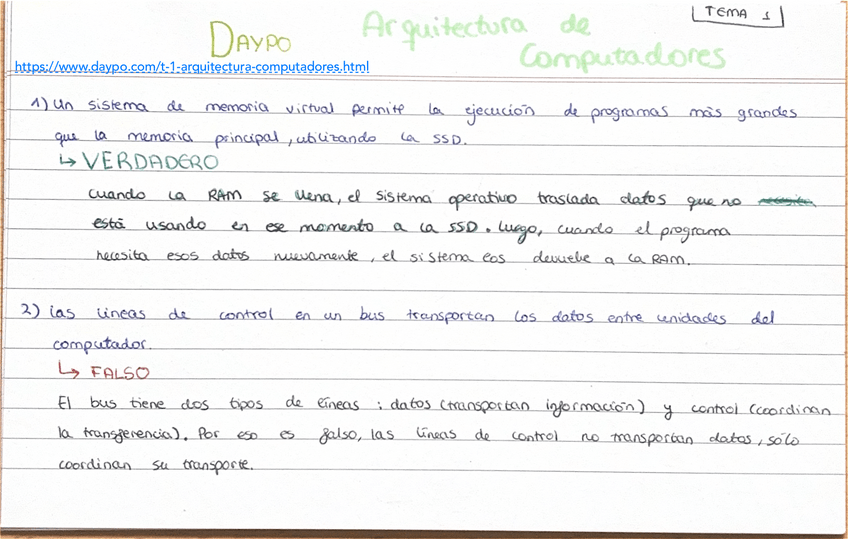 TEMA 1
DAYPO
Arquitectura de
Computadores
https://www.daypo.com/t-1-arquitectura-computadores.html
1) Un sistema de memoria virtual permite la ejecución de programas más grandes
que la memoria principal, utilizando la SSD.
↳ VERDADERO
cuando la RAM se llena, el sistema operativo traslada datos que no
está usando en ese momento a la SSD. Luego, cuando el programa
necesita esos datos nuevamente, el sistema los devuelve a la RAM.
2) Las líneas de control en un bus transportan los datos entre unidades del
computador.
↳ FALSO
El bus tiene dos tipos de líneas: datos (transportan información) y control (coordinan
la transferencia). Por eso es falso, las líneas de control no transportan datos, sólo
coordinan su transporte.